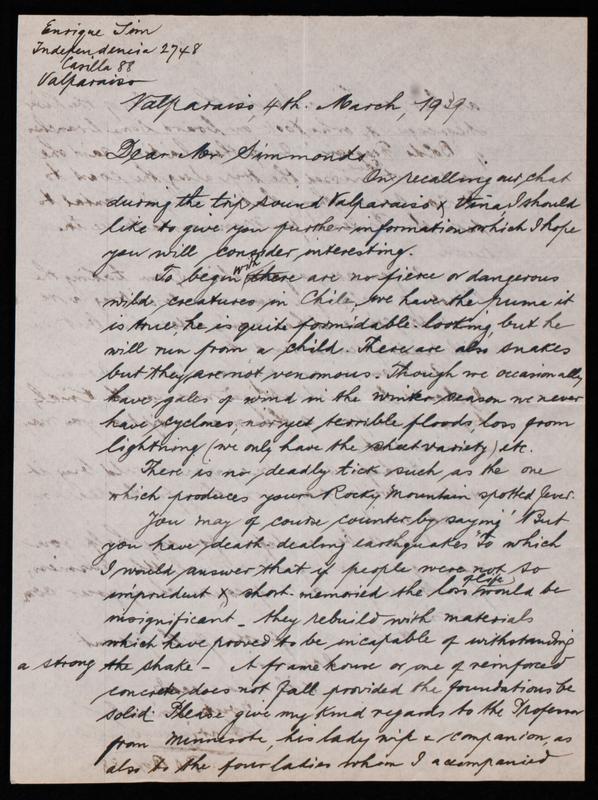 Enrique Sim
Independencia 2748
Casilla 88
Valparaiso
Valparaiso 4th. March, 1939
Dear Mr Simmonds
On recalling our chat
during the trip round Valparaiso & Viña, I should
like to give you further information which I hope
you will consider interesting.
To begin with there are no fierce or dangerous
wild creatures in Chile, we have the puma it
is true, he is quite formidable looking, but he
will run from a child. There are also snakes
but they are not venomous. Though we occasionally
have gales of wind in the winter season we never
have cyclones, nor yet terrible floods, loss from
lightning (we only have the sheet variety) etc.
There is no deadly tick such as the one
which produces your Rocky Mountain spotted fever.
You may of course counter by saying "But
you have death dealing earthquakes" to which
I would answer that if people were not so
imprudent & short memoried the loss of life would be
insignificant - they rebuild with materials
which have proved to be incapable of withstanding
a strong shake - A frame house or one of reinforced
concrete does not fall provided the foundations be
solid. Please give my kind regards to the Professor
from Minnesota, his lady wife & companion, as
also to the four ladies whom I accompanied